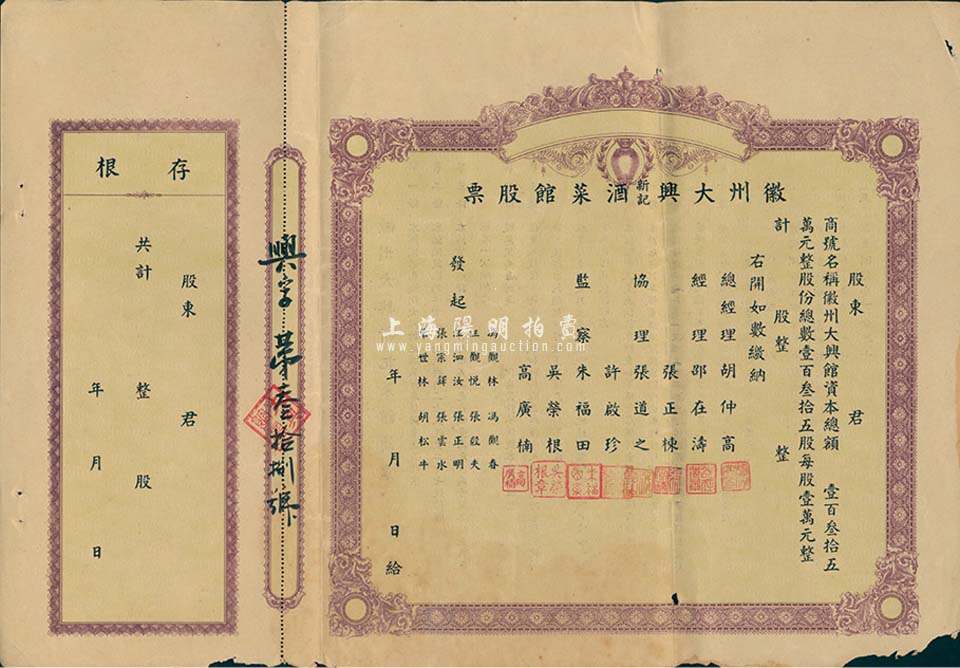 徽州大興新記酒菜館股票
股東　君
商號名稱徽州大興館資本總額　壹百叁拾五
萬元整股份總數壹百叁拾五股每股壹萬元整
計　股整　整
右開如數繳納
總經理胡仲高
經理邵在濤
張正棟
協理張道之
許啟珍
監察朱福田
吳榮根
高廣楠
發起
馮觀林　馮觀春
汪觀悅　張毅夫
汪泗汝　張正明
張宗鐸　張雲水
世林　胡松牛
年　月　日給
興字第叁拾捌號
存根
股東　君
共計　整股
年　月　日
上海陽明拍賣
www.yangmingauction.com